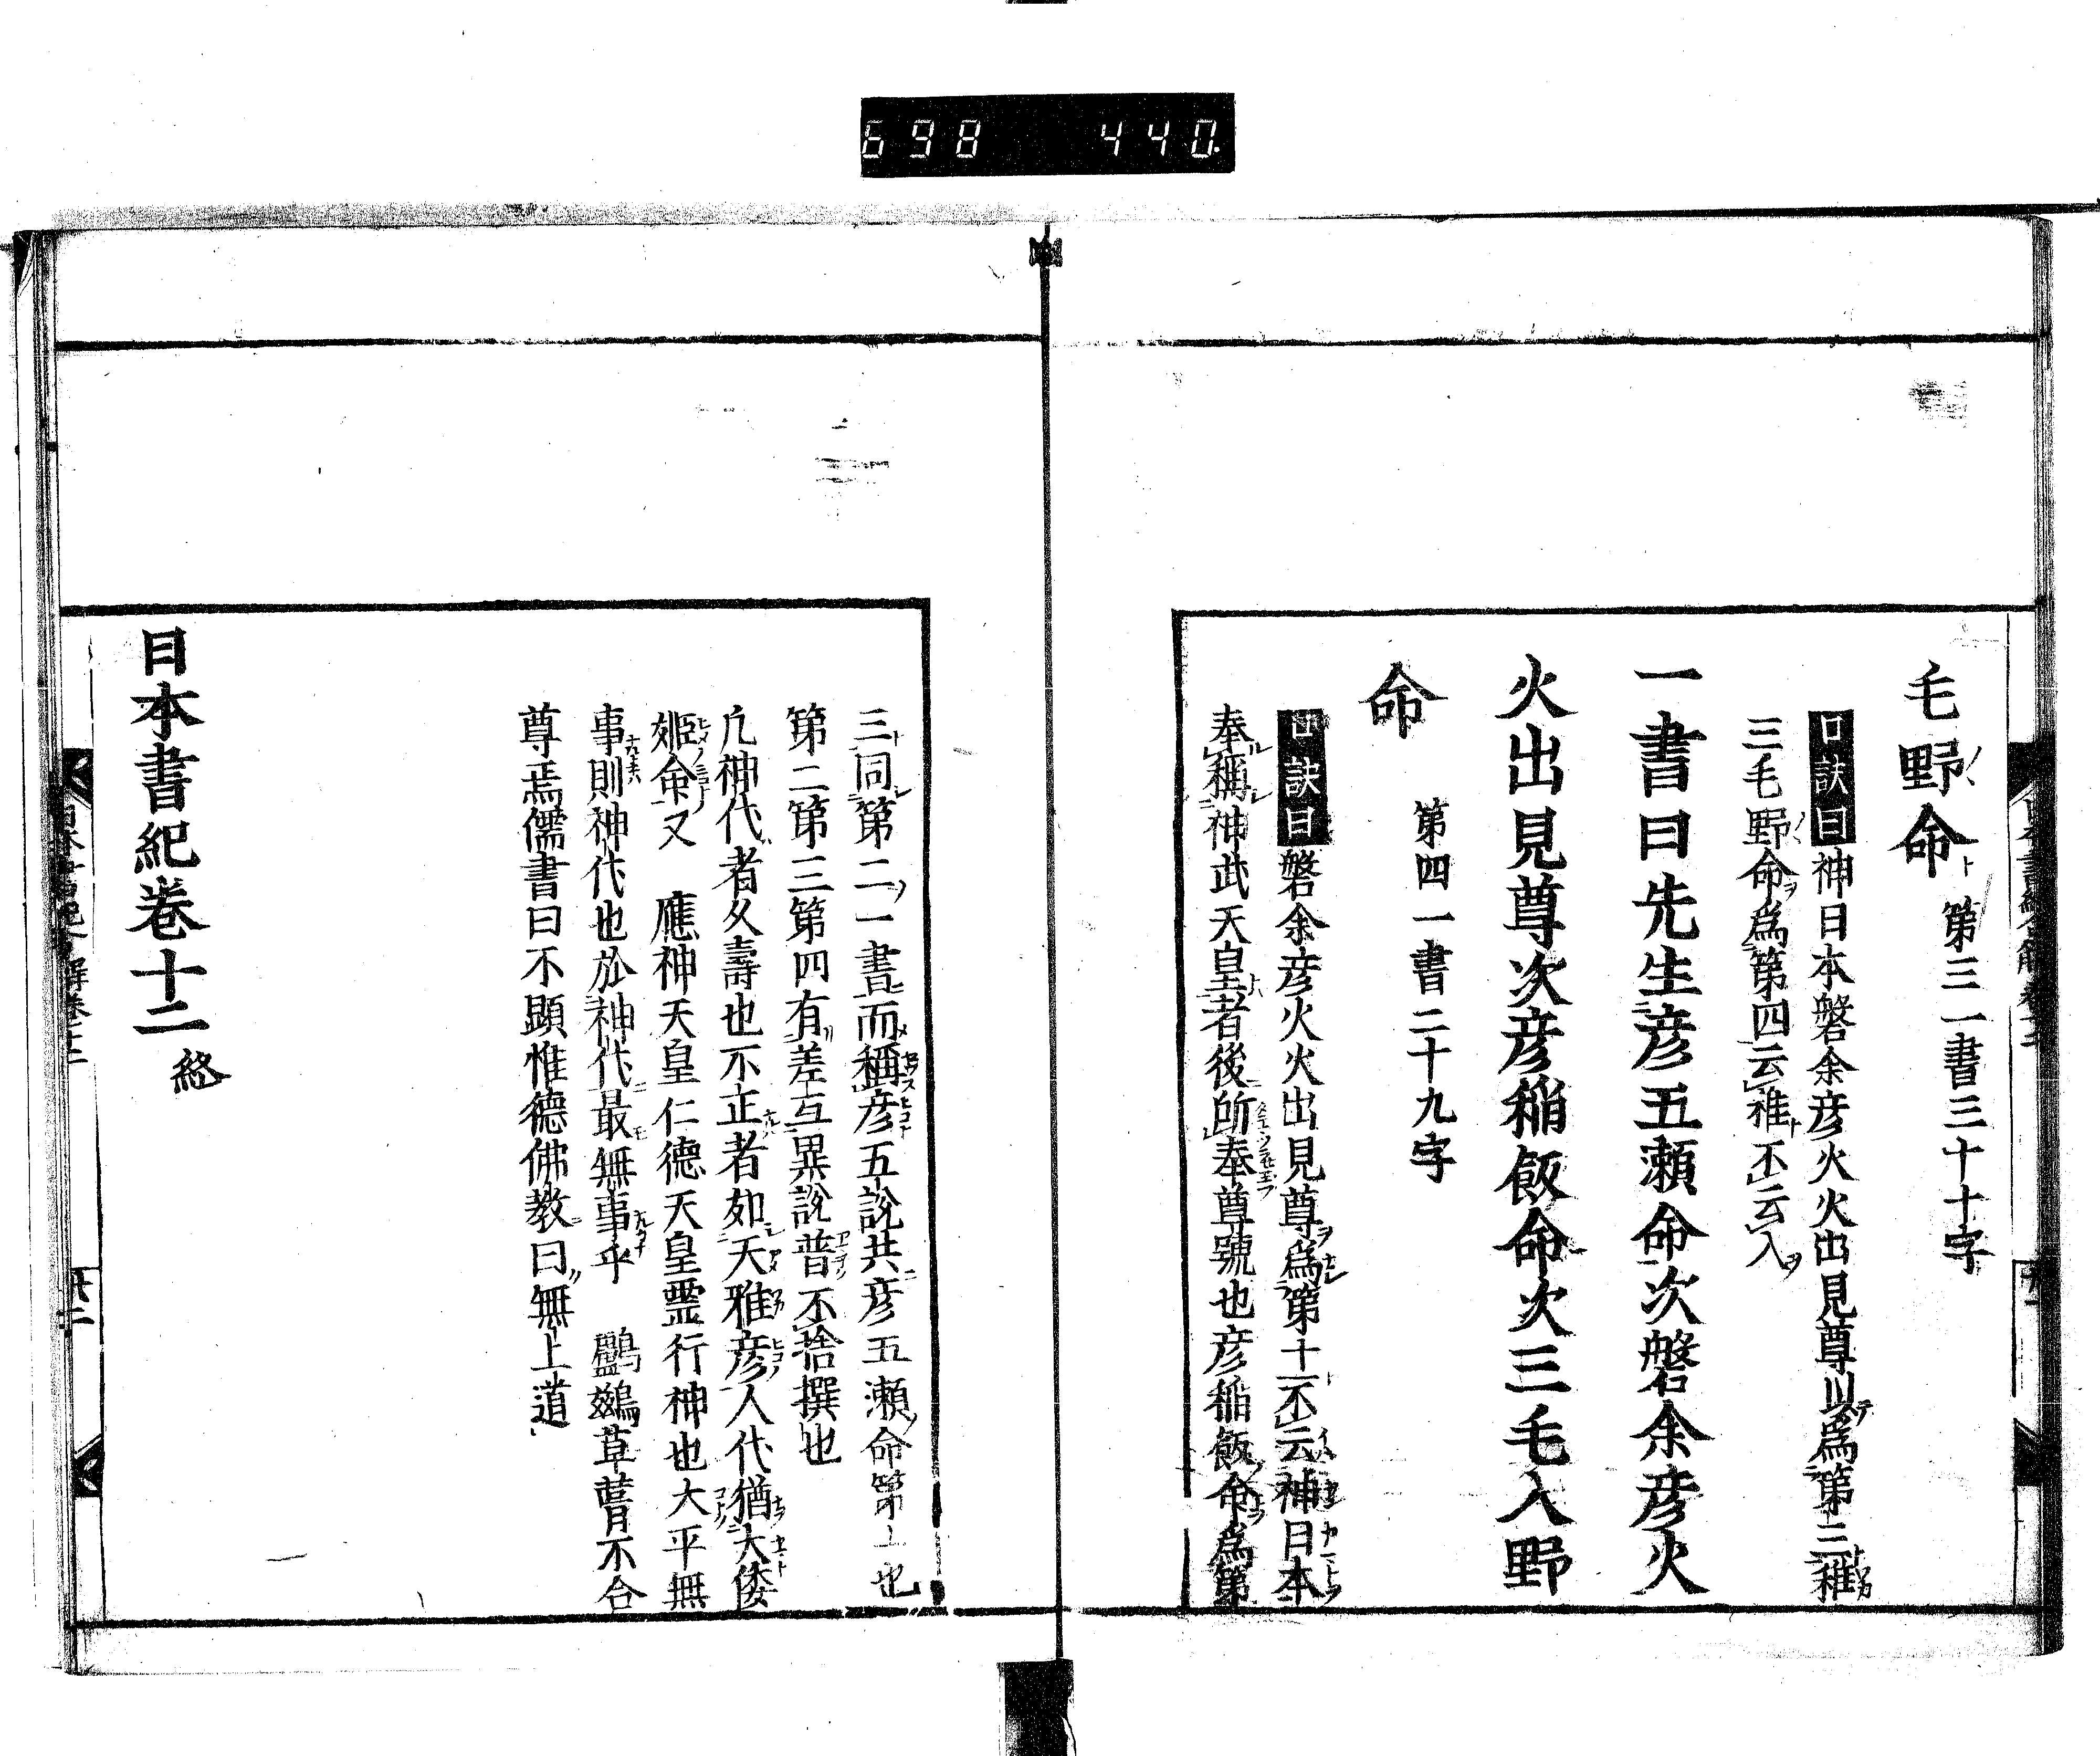 698 440
毛野命 第三一書三十十字
口訣曰神日本磐余彦火火出見尊以爲第三稚
三毛野命爲第四云稚不云入
一書曰先生彦五瀬命次磐余彦火
火出見尊次彦稲飯命次三毛入野
命 第四一書二十九字
口訣曰磐余彦火火出見尊爲第十一不云神日本
奉稱神武天皇者後所奉尊號也彦稲飯命爲第
三同第二一書而稱彦五說共彦五瀬命第上也
第二第三第四有差互異說普不捨撰也
凢神代者久壽也不正者如天雅彦人代猶大倭
姫命又 應神天皇仁德天皇靈行神也大平無
事則神代也於神代最無事乎 鸕鷀草葺不合
尊焉儒書曰不顕惟德佛教曰無上道
日本書紀卷十二終